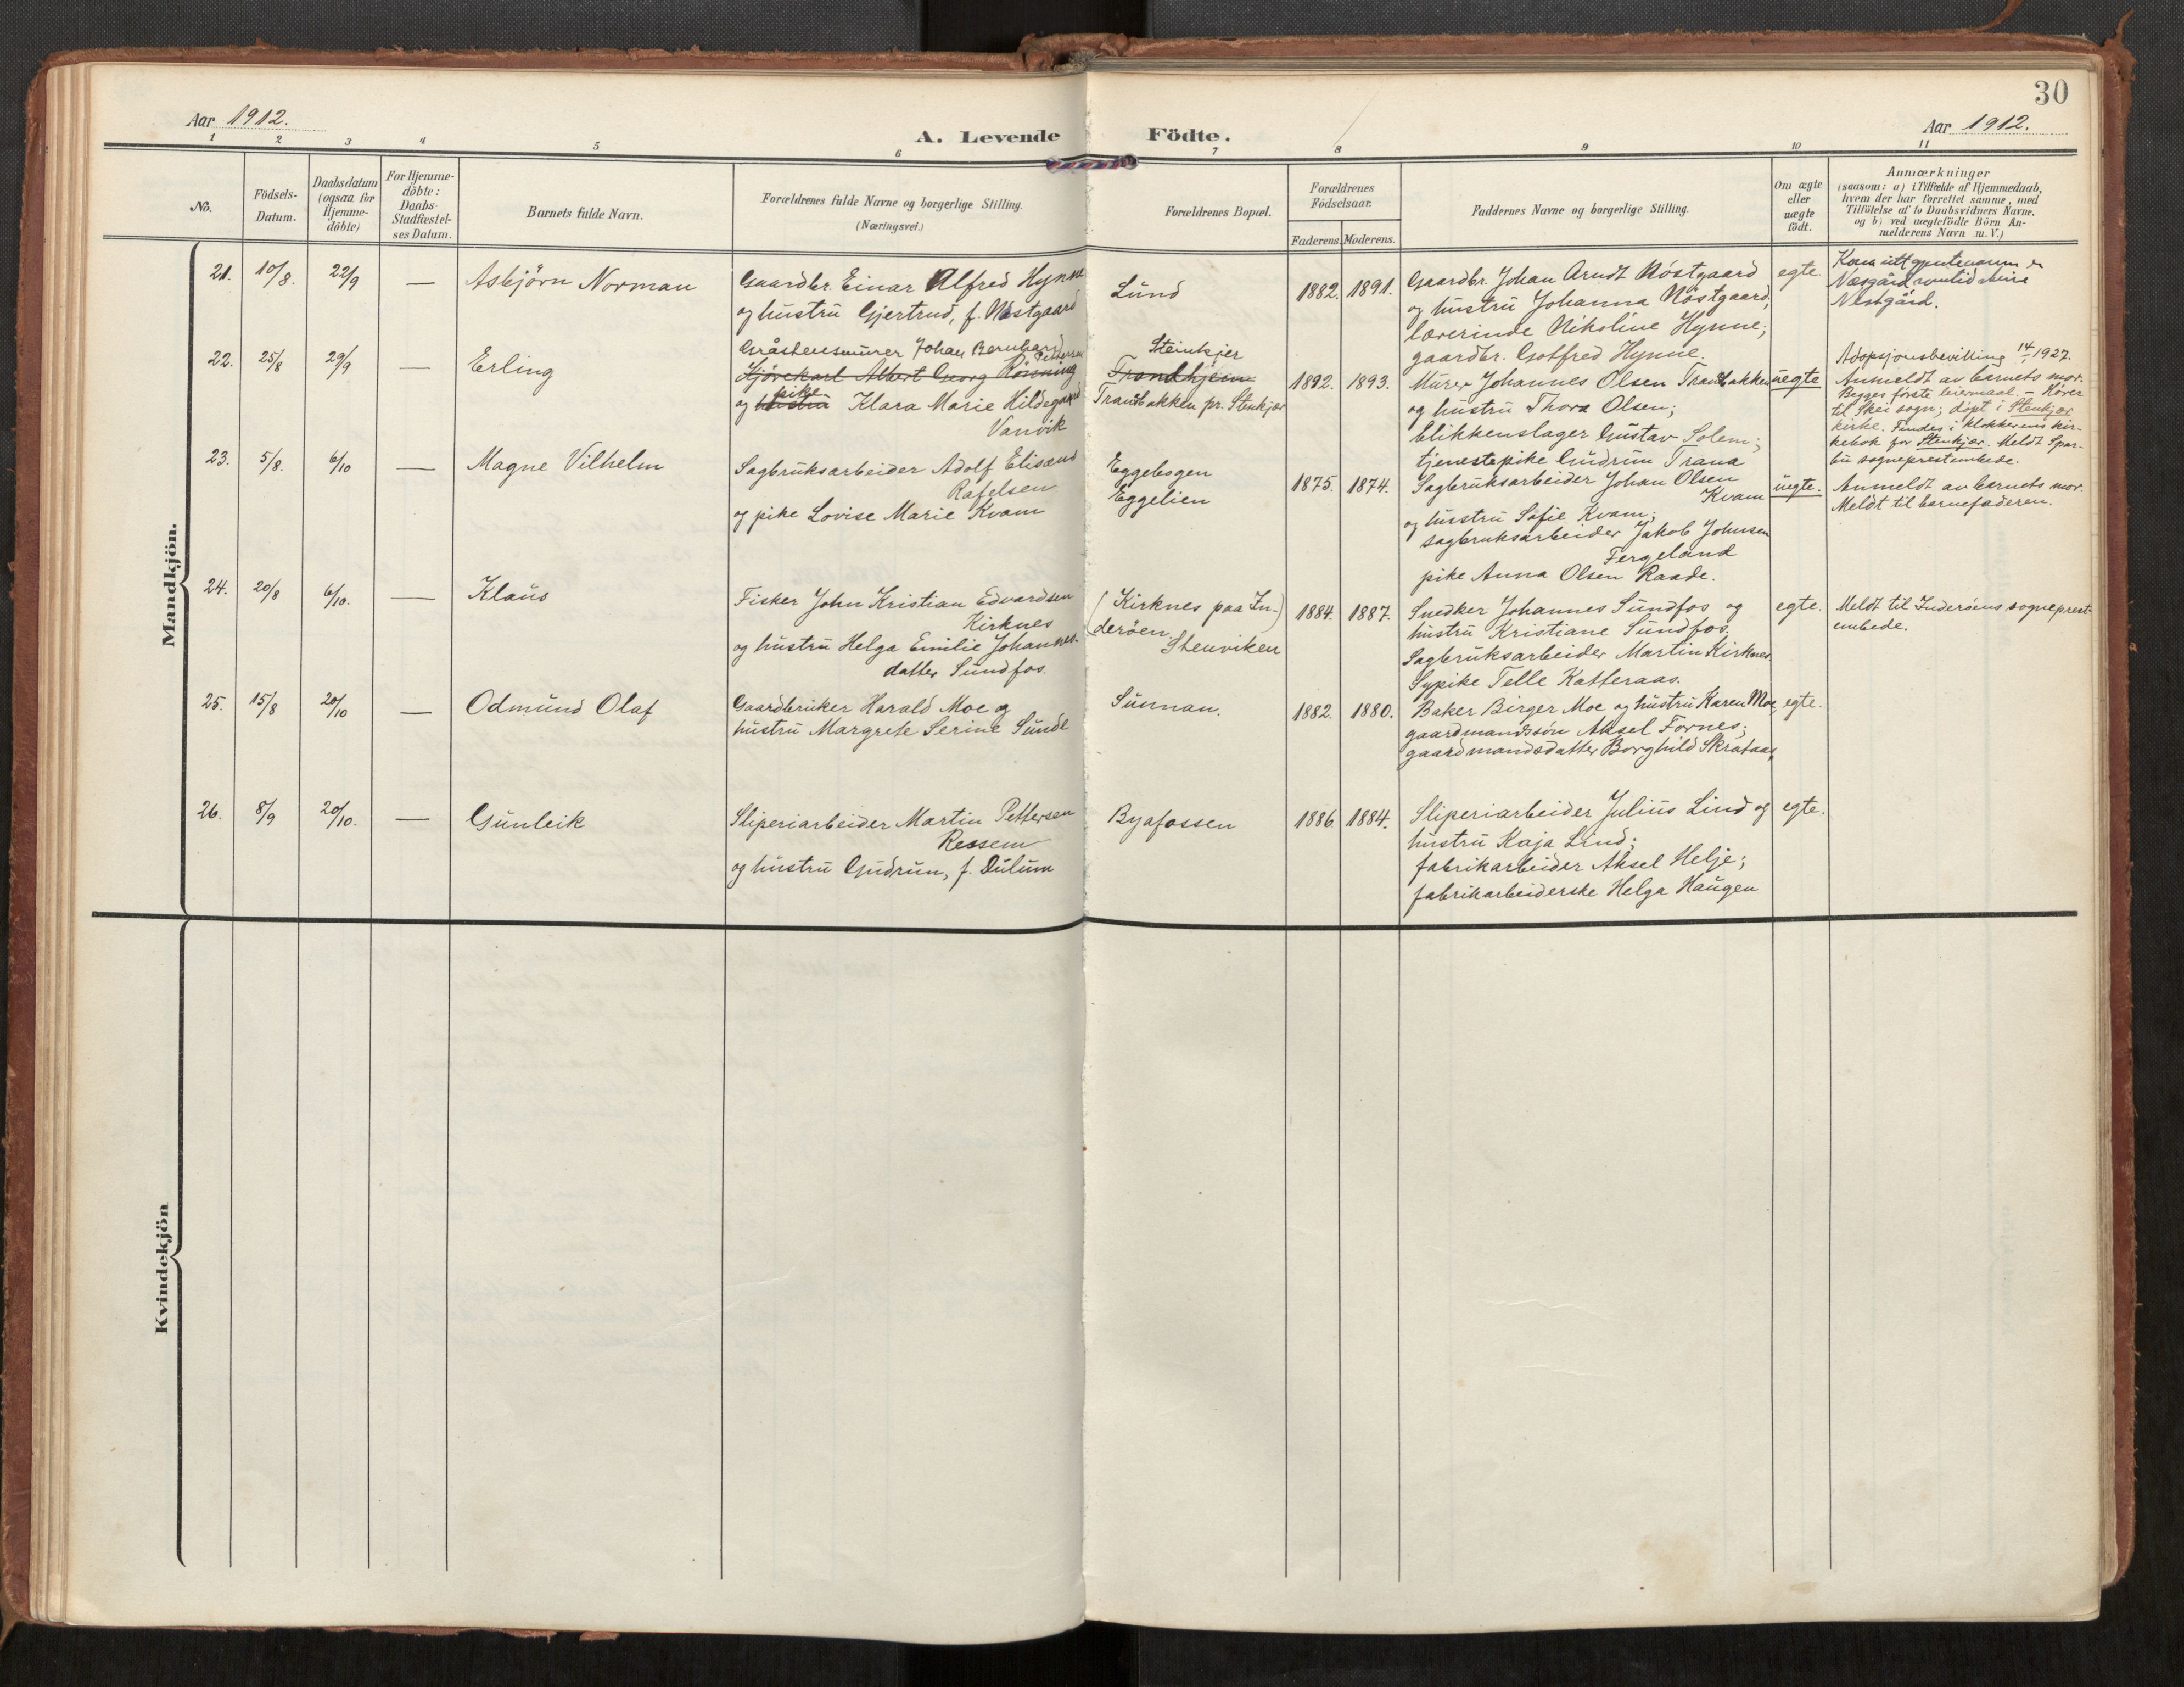 30
Aar 1912.
A. Levende Födte.
Aar 1912.
1 2 3 4 5 6 7 8 9 10 11
No.
Födsels-
Datum.
Daabsdatum
(ogsaa for
Hjemme-
döbte)
For Hjemme-
döbte:
Daabs-
Stadfæstel-
ses Datum.
Barnets fulde Navn.
Forældrenes fulde Navne og borgerlige Stilling.
(Næringsvei.)
Forældrenes Bopæl.
Forældrenes
Födselsaar.
Faderens. Moderens.
Faddernes Navne og borgerlige Stilling.
Om ægte
eller
uægte
födt.
Anmærkninger
(saasom: a) i Tilfælde af Hjemmedaab,
hvem der har forrettet samme, med
Tilföielse af to Daabsvidners Navne.
og b) ved uægtefödte Börn An-
melderens Navn m. V.)
Mandkjön.
21. 10/8. 22/9 — Asbjörn Norman
Gaardbr. Einar Alfred Hynne
og hustru Gjertrud, f. Nöstgaard
Lund
1882. 1891.
Gaardbr. Johan Arndt Nöstgaard
og hustru Johanna Nöstgaard,
lærerinde Nikoline Hynne;
gaardbr. Gotfred Hynne.
egte
Nestgård.
22. 25/8 29/9 — Erling
Gråsteinsmurer Johan Bernhard
Pettersen
Hjörekarl Albert Georg Rönning
pike
og hustru Klara Marie Hildegard
Vanvik
Steinkjer
Trondhjem
Tranabakken pr. Stenkjær
1892. 1893.
Murer Johannes Olsen Tranabakken
og hustru Thora Olsen;
blikkenslager Gustav Solem;
tjenestepike Gudrun Trana
uegte
Adopsjonsbevilling 14/1 1927.
Anmeldt av barnets mor.
Begges förste leiermaal. – Hörer
til Skei sogn; döpt i Stenkjær
kirke. Findes i klokkerens kir-
kebok for Stenkjær. Meldt Spar-
bu sogneprestembede.
23. 5/8. 6/10 — Magne Vilhelm
Sagbruksarbeider Adolf Elisæus
Rafelsen
og pike Lovise Marie Kvam
Eggebogen
Eggelien
1875. 1874.
Sagbruksarbeider Johan Olsen
Kvam
og hustru Sofie Kvam;
sagbruksarbeider Jakob Johnsen
Fergeland
pike Anna Olsen Raade.
uegte.
Anmeldt av barnets mor.
Meldt til barnefaderen.
24. 20/8 6/10. — Klaus
Fisker John Kristian Edvardsen
Kirknes
og hustru Helga Emilie Johannes-
datter Sundfos.
(Kirknes paa In-)
deröen.
Stenviken
1884. 1887.
Snedker Johannes Sundfos og
hustru Kristiane Sundfos.
Sagbruksarbeider Martin Kirknes.
Sypike Telle Katteraas.
egte.
Meldt til Inderöens sogneprest-
embede.
25. 15/8 20/10 — Odmund Olaf
Gaardbruker Harald Moe og
hustru Margrete Serine Sunde
Sunnan.
1882. 1880.
Baker Birger Moe og hustru Karen Moe,
gaardmandssön Aksel Fornes;
gaardmandsdatter Borghild Skrataas,
egte.
26. 8/9 20/10. — Gunleik
Sliperiarbeider Martin Pettersen
Ressem
og hustru Gudrun, f. Dulum
Byafossen
1886 1884.
Sliperiarbeider Julius Lind og
hustru Kaja Lind;
fabrikarbeider Aksel Helje;
fabrikarbeiderske Helga Haugen
egte.
Kvindekjön